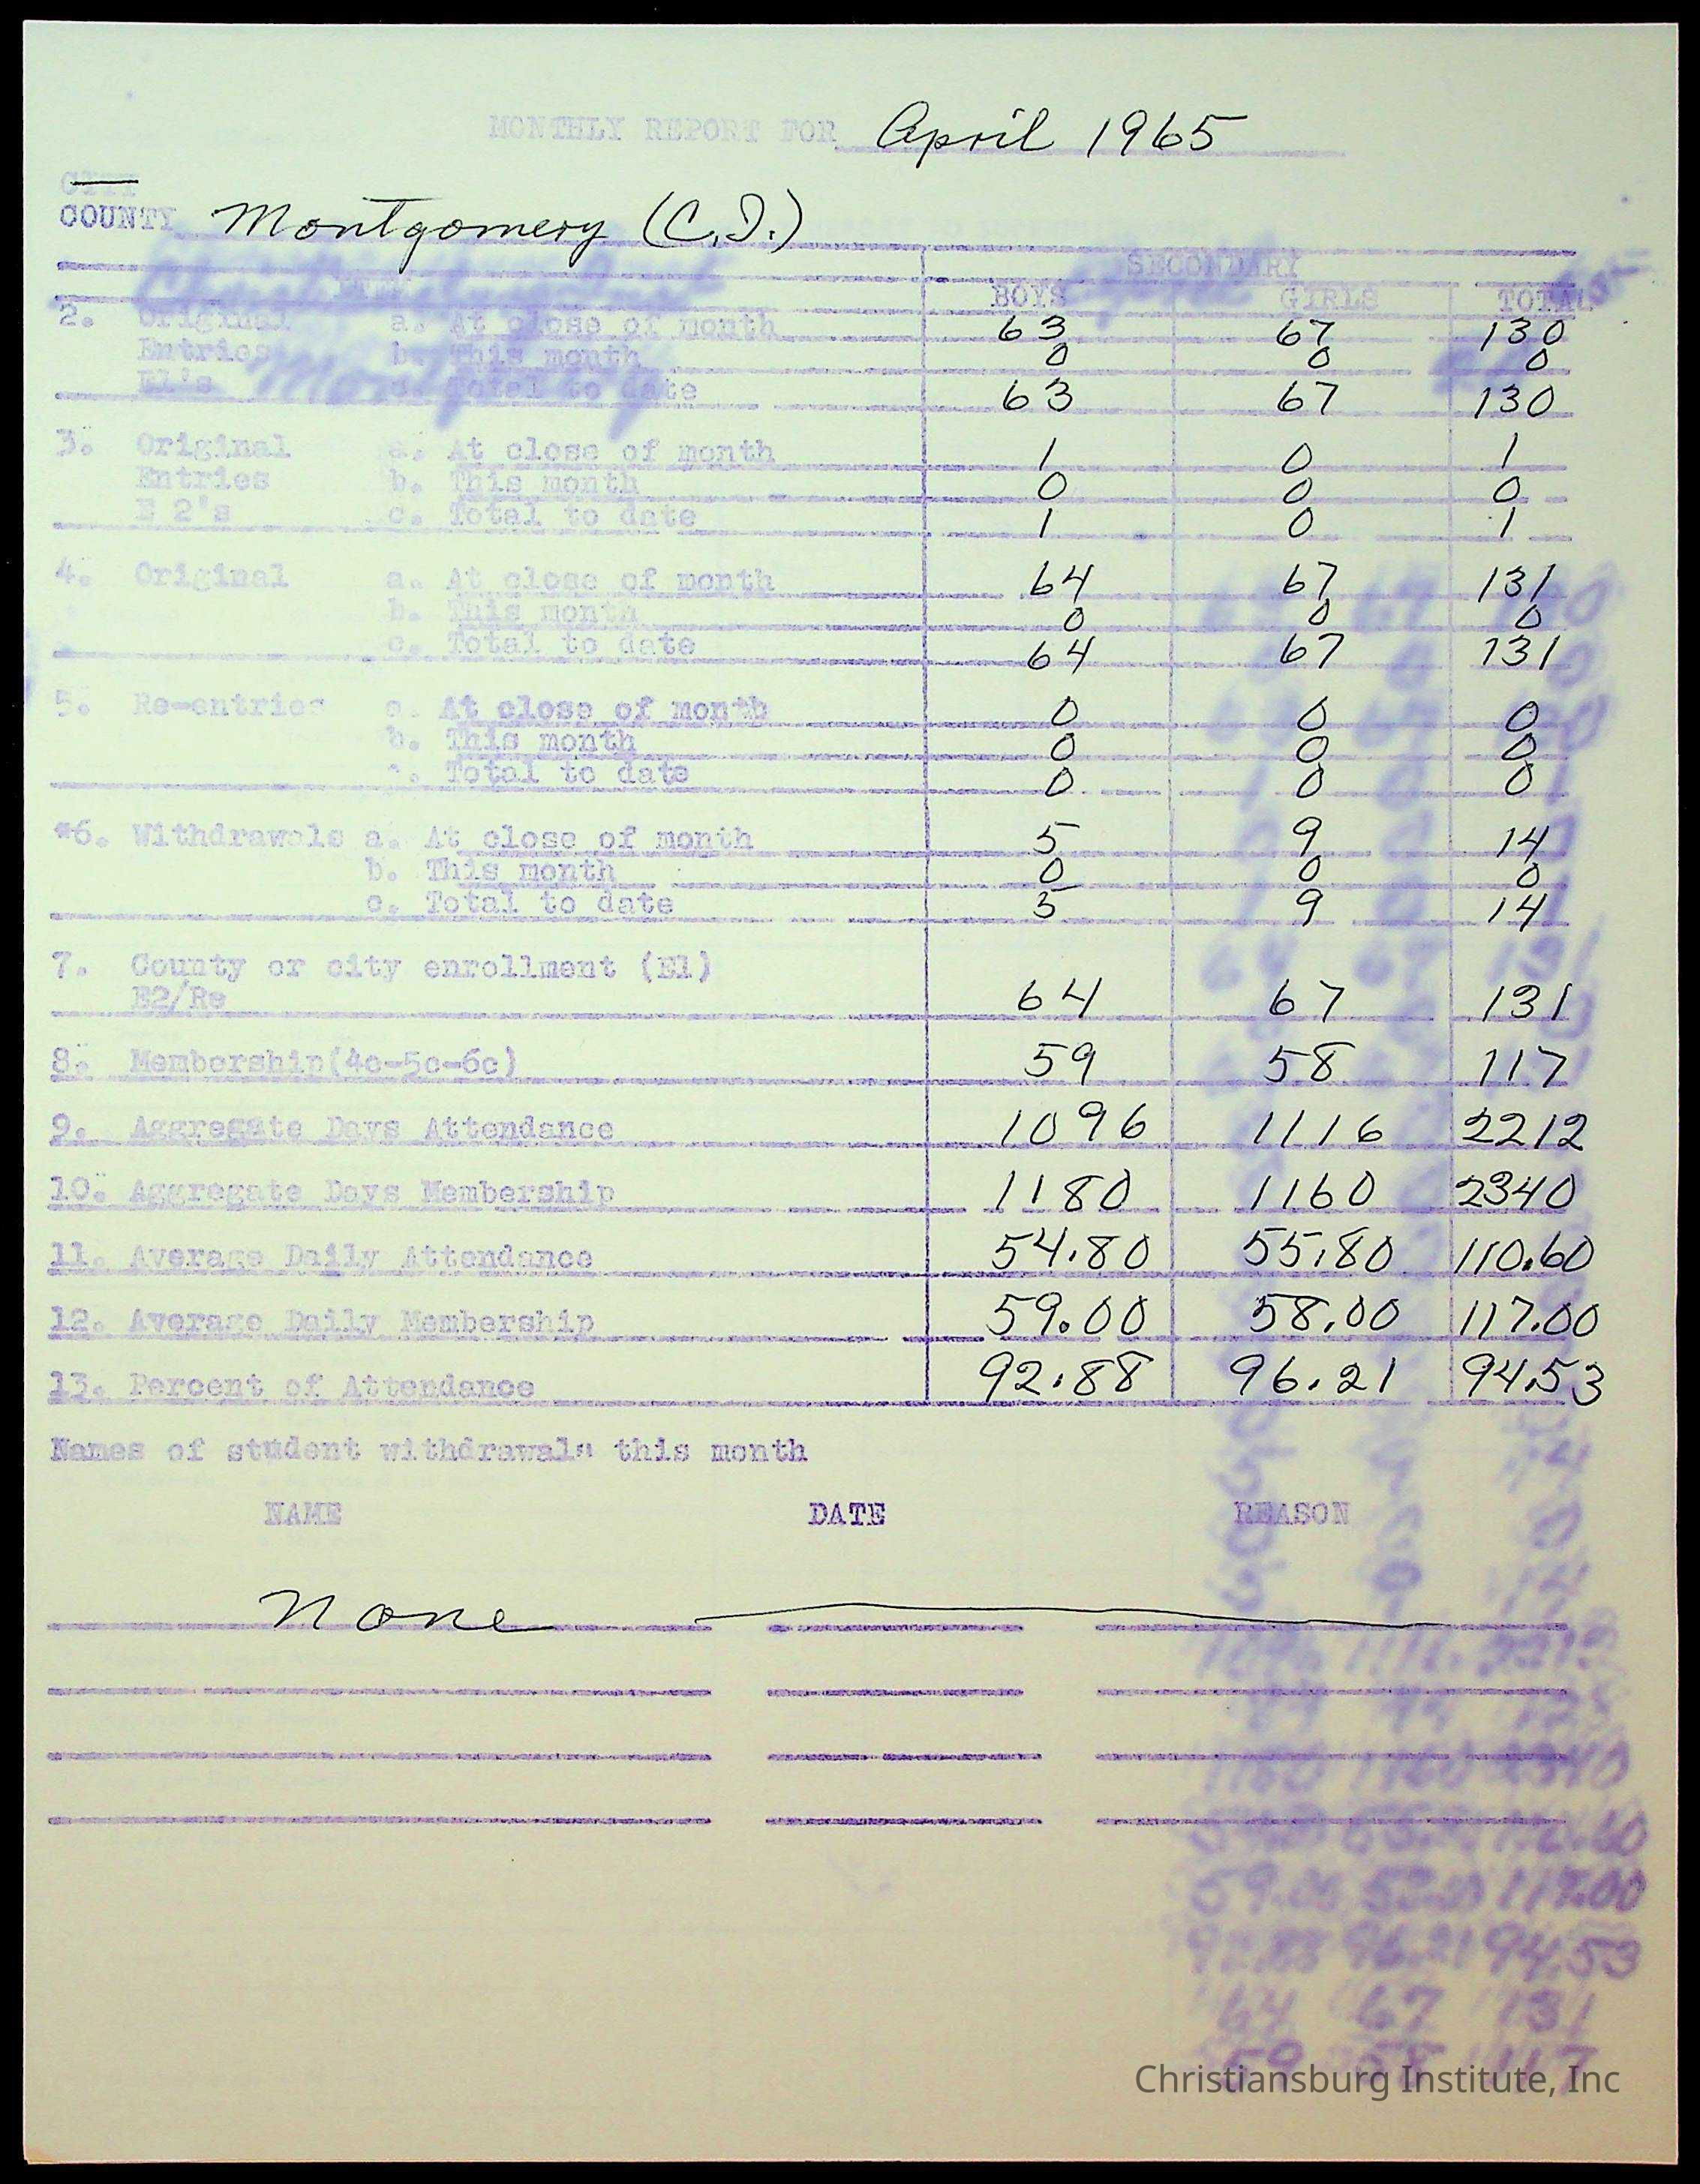 MONTHLY REPORT FOR April 1965
CITY
COUNTY Montgomery (C.I.)
SECONDARY
ITEM BOYS GIRLS TOTAL
2. Original a. At close of month 63 67 130
Entries b. This month 0 0 0
E1's c. Total to date 63 67 130
3. Original a. At close of month 1 0 1
Entries b. This month 0 0 0
E 2's c. Total to date 1 0 1
4. Original a. At close of month 64 67 131
b. This month 0 0 0
c. Total to date 64 67 131
5. Re-entries a. At close of month 0 0 0
b. This month 0 0 0
c. Total to date 0 0 0
*6. Withdrawals a. At close of month 5 9 14
b. This month 0 0 0
c. Total to date 5 9 14
7. County or city enrollment (E1)
E2/Re 64 67 131
8. Membership(4c-5c-6c) 59 58 117
9. Aggregate Days Attendance 1096 1116 2212
10. Aggregate Days Membership 1180 1160 2340
11. Average Daily Attendance 54.80 55.80 110.60
12. Average Daily Membership 59.00 58.00 117.00
13. Percent of Attendance 92.88 96.21 94.53
Names of student withdrawals this month
NAME DATE REASON
None
Christiansburg Institute, Inc